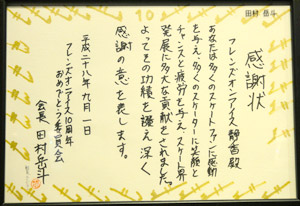 10
田村 岳斗
感謝状
フレンズオンアイス 静香殿
あなたは多くのスケートファンに感動
を与え、多くのスケーターに笑顔と
チャンスと疲労を与え、スケート界
発展に多大な貢献をされました。
よってその功績を讃え深く
感謝の意を表します。
平成二十八年 九月 一日
フレンズオンアイス10周年
おめでとう委員会
会長 田村岳斗